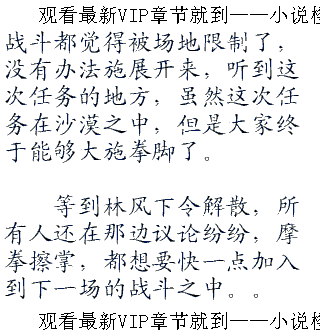 观看最新VIP章节就到——小说
战斗都觉得被场地限制了，
没有办法施展开来，听到这
次任务的地方，虽然这次任
务在沙漠之中，但是大家终
于能够大施拳脚了。
等到林风下令解散，所
有人还在那边议论纷纷，摩
拳擦掌，都想要快一点加入
到下一场的战斗之中。。
观看最新VIP章节就到——小说